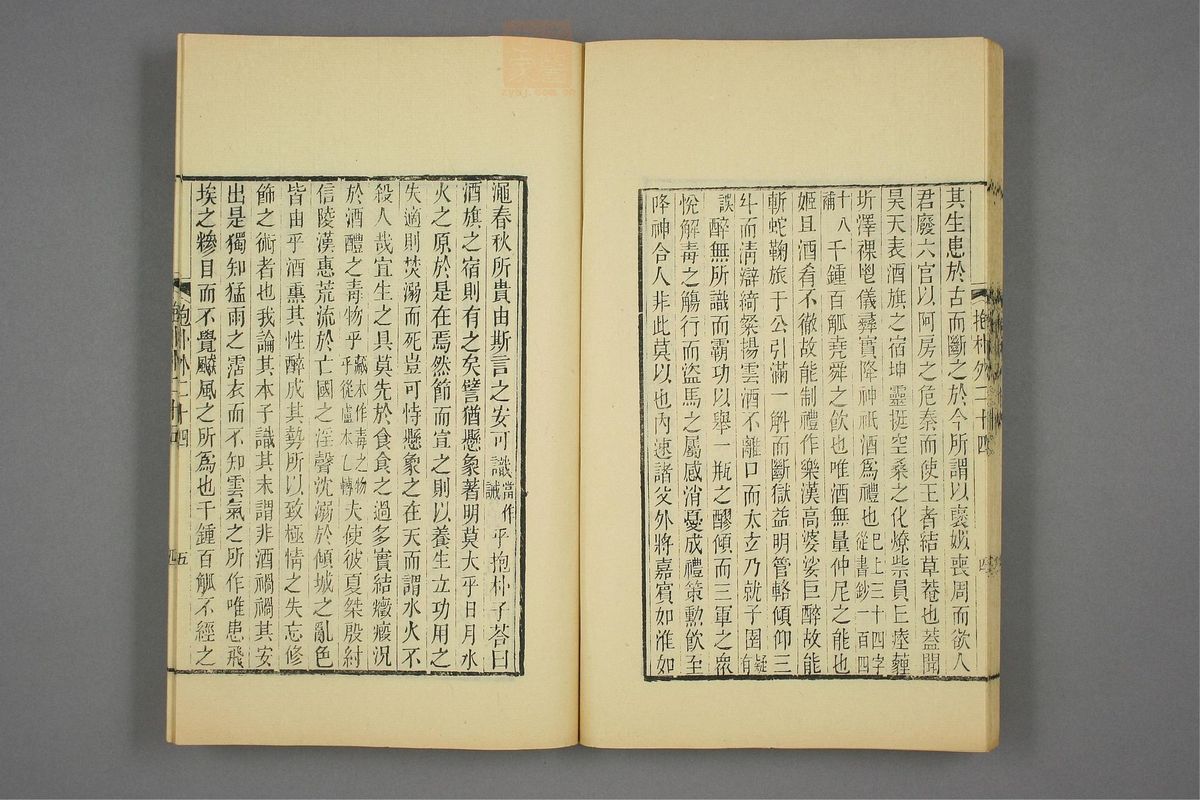 其生患於古而斷之於今所謂以褒姒喪周而欲人
君廢六官以阿房之危秦而使王者結草菴也蓋聞
昊天表酒旗之宿坤靈挺空桑之化燎柴員丘瘞薶
圻澤祼鬯儀彞實降神祇酒爲禮也從書鈔一百四
十八補千鍾百觚堯舜之飲也唯酒無量仲尼之能也
姬旦酒肴不徹故能制禮作樂漢高婆娑巨醉故能
斬蛇鞠旅于公引滿一斛而斷獄益明管輅傾仰三
斗而清辯綺粲揚雲酒不離口而太玄乃就子圉有疑
誤醉無所識而霸功以舉一瓶之醪傾而三軍之衆
悅解毒之觴行而盜馬之屬感消憂成禮策勲飲至
降神合人非此莫以也內速諸父外將嘉賓如淮如
抱朴外二十四
四
澠春秋所貴由斯言之安可識當作誡乎抱朴子荅曰
酒旗之宿則有之矣譬猶懸象著明莫大乎日月水
火之原於是在焉然節而宣之則以養生立功用之
失適則焚溺而死豈可恃懸象之在天而謂水火不
殺人哉宜生之具莫先於食食之過多實結癥瘕況
於酒醴之毒物乎藏本作毒之物乎從盧本乙轉夫使彼夏桀殷紂
信陵漢惠荒流於亡國之淫聲沈溺於傾城之亂色
皆由乎酒熏其性醉成其勢所以致極情之失忘修
飾之術者也我論其本子識其末謂非酒禍禍其安
出是獨知猛雨之霑衣而不知雲氣之所作唯患飛
埃之糝目而不覺飈風之所爲也千鍾百觚不經之
抱朴外二十四
五